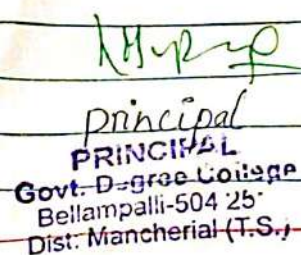 principal
PRINCIPAL
Govt. Degree College
Bellampalli-504 25
Dist: Mancherial (T.S.)